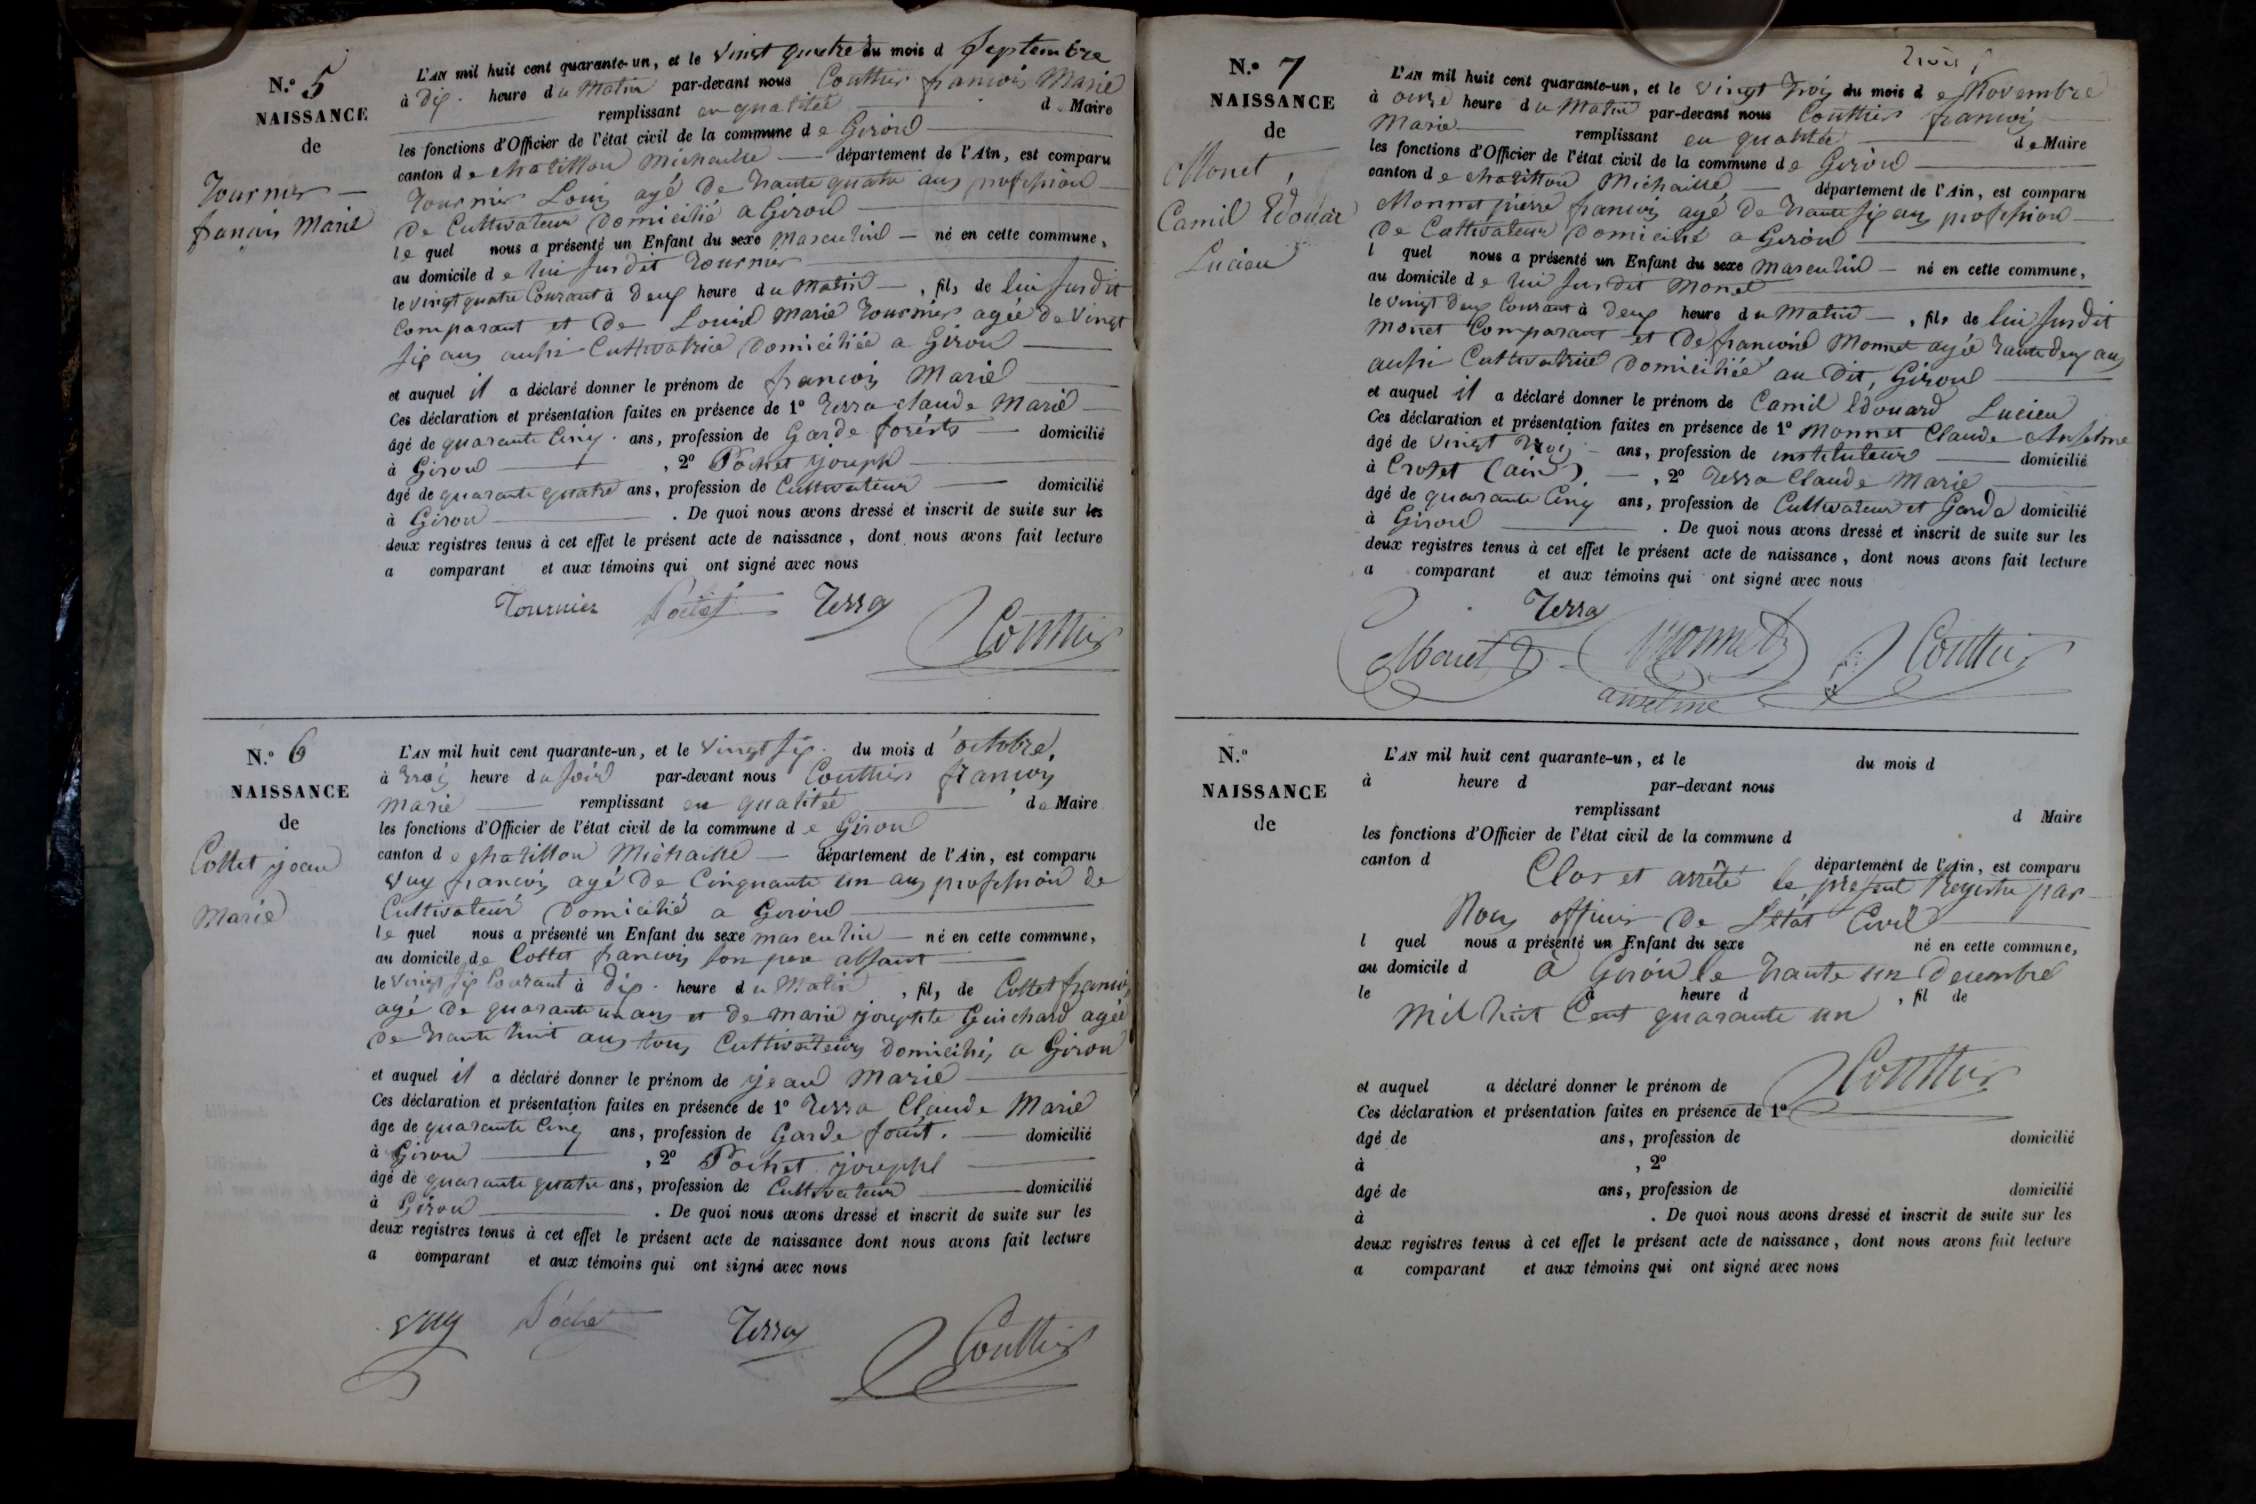 N.o 5
NAISSANCE
de
Tournier
françois Marie
L'AN mil huit cent quarante-un, et le vingt quatre du mois d Septembre
à dix heure du Matin par-devant nous Couttier françois Marie
remplissant en qualitée de Maire
les fonctions d'Officier de l'état civil de la commune de Giron
canton de chatillon Michaille département de l'Ain, est comparu
Tournier Louis agé de trante quatre ans profession
de Cultivateur Domicilié a Giron
le quel nous a présenté un Enfant du sexe Masculin né en cette commune,
au domicile de lui susdit Tournier
le vingt quatre Courant à deux heure du Matin, fils de lui susdit
Comparant et de Louise Marie Tournier agée de vingt
six ans aussi Cultivatrice Domiciliée a Giron
et auquel il a déclaré donner le prénom de françois Marie
Ces déclaration et présentation faites en présence de 1o Terra claude Marie
âgé de quarante Cinq ans, profession de Garde forêts domicilié
à Giron, 2o Pochet joseph
âgé de quarante quatre ans, profession de Cultivateur domicilié
à Giron. De quoi nous avons dressé et inscrit de suite sur les
deux registres tenus à cet effet le présent acte de naissance, dont nous avons fait lecture
a comparant et aux témoins qui ont signé avec nous
Tournier Pochet Terra
Couttier
N.o 6
NAISSANCE
de
Cottet jean
Marie
L'AN mil huit cent quarante-un, et le vingt six du mois d'octobre,
à trois heure du soir par-devant nous Couttier françois
Marie remplissant en qualitée de Maire
les fonctions d'Officier de l'état civil de la commune de Giron
canton de chatillon Michaille département de l'Ain, est comparu
Vuy françois agé de Cinquante un ans profession de
Cultivateur Domicilié a Giron
le quel nous a présenté un Enfant du sexe masculin né en cette commune,
au domicile de Cottet françois son pere absant
le vingt six Courant à dix heure du Matin, fils de Cottet françois
agé de quarante un ans et de marie josephte Guichard agée
de trante huit ans tous Cultivateurs Domiciliés a Giron
et auquel il a déclaré donner le prénom de jean Marie
Ces déclaration et présentation faites en présence de 1o Terra Claude Marie
âge de quarante Cinq ans, profession de Garde forêt. domicilié
à Giron, 2o Pochet joseph
âgé de quarante quatre ans, profession de Cultivateur domicilié
à Giron. De quoi nous avons dressé et inscrit de suite sur les
deux registres tenus à cet effet le présent acte de naissance dont nous avons fait lecture
a comparant et aux témoins qui ont signé avec nous
Vuy Pochet Terra
Couttier
trois
N.o 7
NAISSANCE
de
Monet,
Camil Edouar
Lucien
L'AN mil huit cent quarante-un, et le vingt trois du mois de Novembre
à onze heure du Matin par-devant nous Couttier françois
Marie remplissant en qualitée de Maire
les fonctions d'Officier de l'état civil de la commune de Giron
canton de chatillon Michaille département de l'Ain, est comparu
Monnet pierre françois agé de trante six ans profession
de Cultivateur Domicilié a Giron
l quel nous a présenté un Enfant du sexe masculin né en cette commune,
au domicile de lui sus dit Monet
le vingt deux Courant à deux heure du Matin, fils de lui susdit
Monet Comparant et de françoise Monnet agée trante deux ans
aussi Cultivatrice Domiciliée au Dit, Giron
et auquel il a déclaré donner le prénom de Camil Edouard Lucien
Ces déclaration et présentation faites en présence de 1o Monnet Claude Anselme
âgé de vingt trois ans, profession de instituteur domicilié
à Crozet (ain), 2o Terra Claude Marie
âgé de quarante Cinq ans, profession de Cultivateur et Garde domicilié
à Giron. De quoi nous avons dressé et inscrit de suite sur les
deux registres tenus à cet effet le présent acte de naissance, dont nous avons fait lecture
a comparant et aux témoins qui ont signé avec nous
Terra
Monet Monnet Couttier
anselme
N.o
NAISSANCE
de
L'AN mil huit cent quarante-un, et le du mois d
à heure d par-devant nous
remplissant d Maire
les fonctions d'Officier de l'état civil de la commune d
canton d département de l'Ain, est comparu
Clos et arrêté le présent Registre par
Nous officier De L'état Civil
l quel nous a présenté un Enfant du sexe né en cette commune,
au domicile d
a Giron le trante un Decembre
le à heure d, fil de
Mil huit Cent quarante un
Couttier
et auquel a déclaré donner le prénom de
Ces déclaration et présentation faites en présence de 1o
âgé de ans, profession de domicilié
à, 2o
âgé de ans, profession de domicilié
à. De quoi nous avons dressé et inscrit de suite sur les
deux registres tenus à cet effet le présent acte de naissance, dont nous avons fait lecture
a comparant et aux témoins qui ont signé avec nous